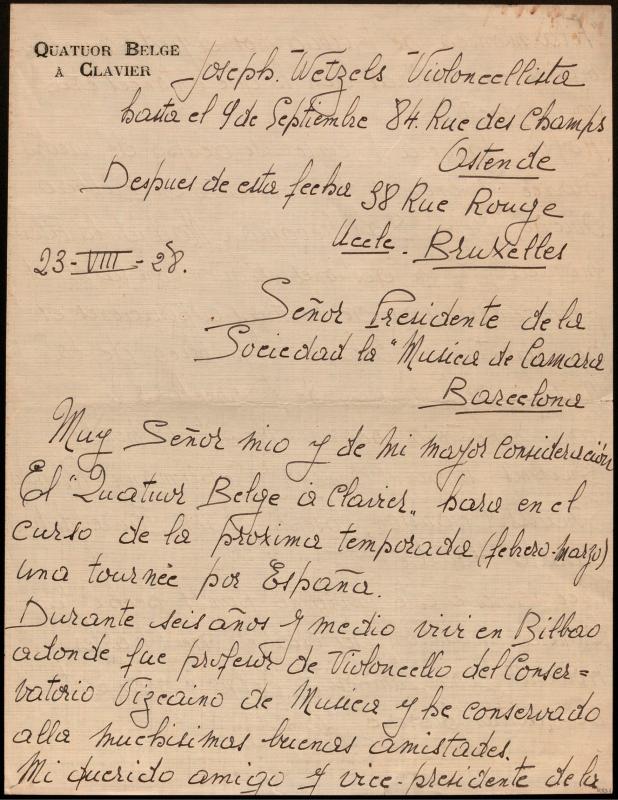 QUATUOR BELGE
À CLAVIER
Joseph. Wetzels Violoncellista
hasta el 9 de Septiembre 84. Rue des Champs
Ostende
Despues de esta fecha 38 Rue Rouge
Uccle. Bruxelles
23-VIII-28.
Señor Presidente de la
Sociedad la "Musica de Camara
Barcelona
Muy Señor mio y de mi mayor consideración
El "Quatuor Belge à Clavier" hara en el
curso de la proxima temporada (febrero-marzo)
una tournée por España.
Durante seis años y medio vivi en Bilbao
adonde fue profesor de Violoncello del Conser=
vatorio Vizcaino de Musica y he conservado
alla muchisimas buenas amistades.
Mi querido amigo y vice-presidente de la